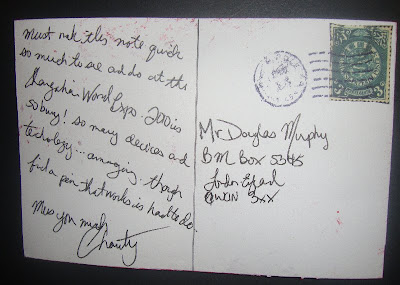 Must make this note quick
so much to see and do at the
Shanghai World Expo - 2010 is
so busy! so many devices and
technology... amazing.. though
find a pen that works is hard to do.
Miss you much
Charity
Mr. Douglas Murphy
BM Box 5345
London England
WCIN 3XX